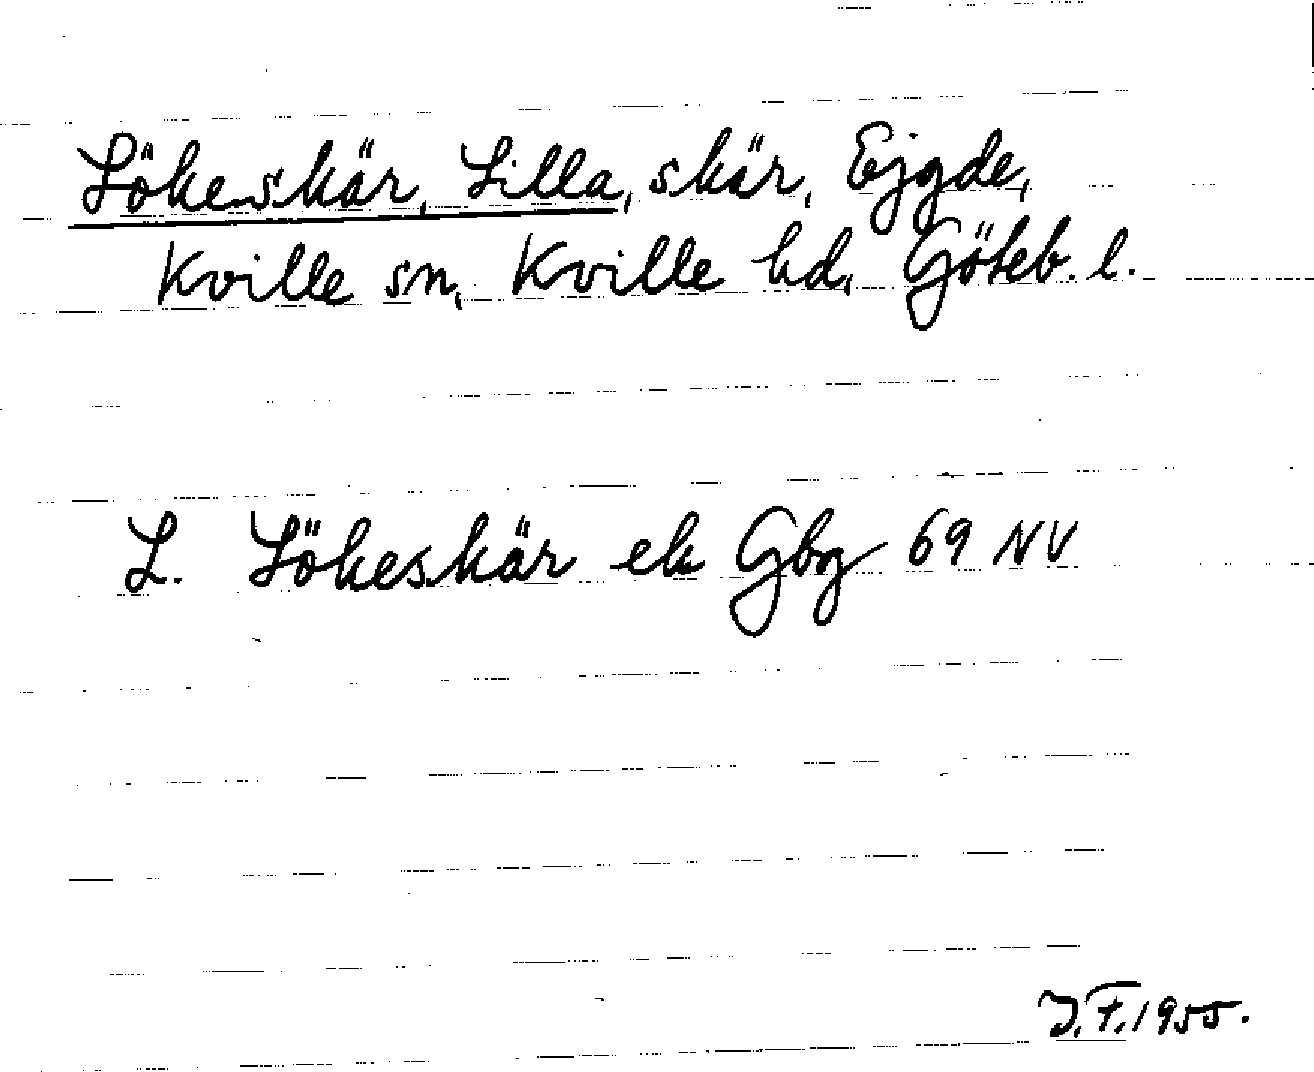 Lökeskär, Lilla, skär, Ejgde,
Kville sn, Kville hd, Göteb. l.
L. Lökeskär ek Gbg 69 NV
J.F. 1955.